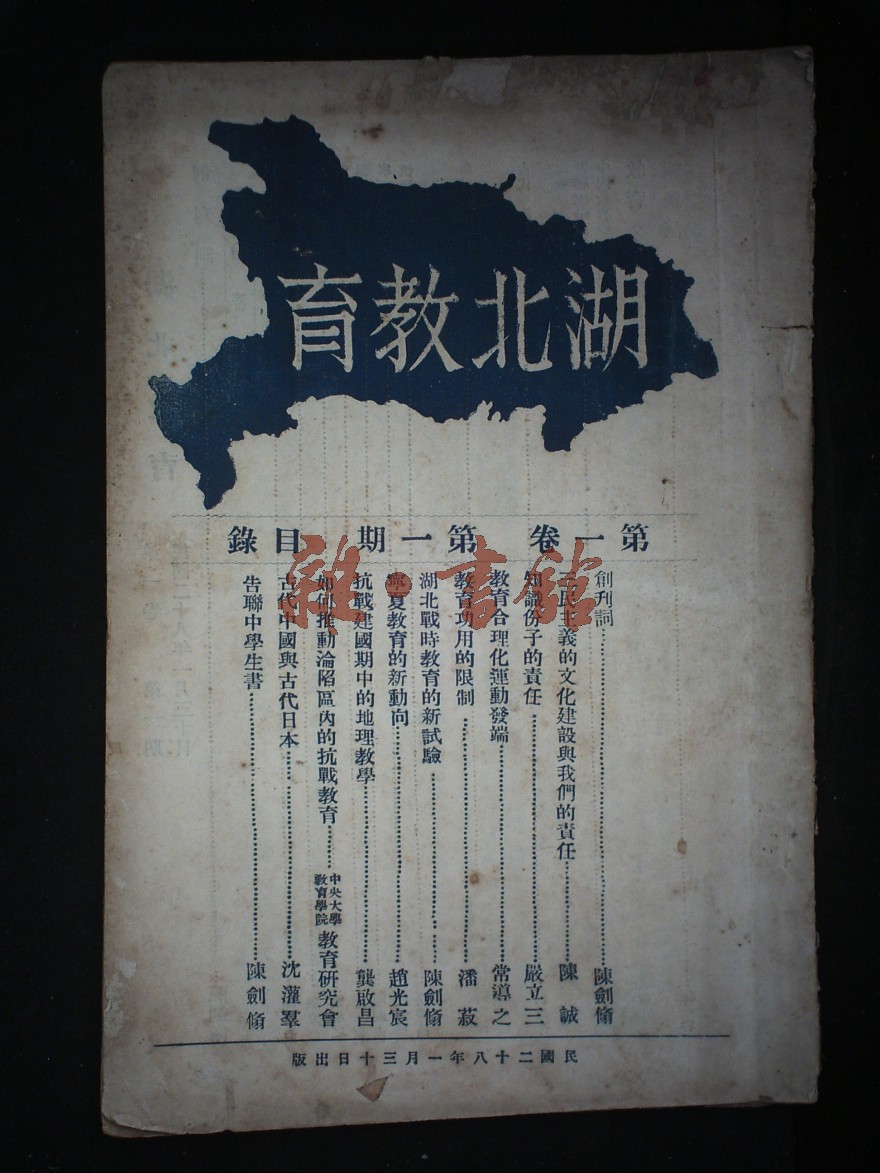 湖北教育
第一卷 第一期 目錄
創刊詞……陳劍翛
三民主義的文化建設與我們的責任……陳誠
知識份子的責任……嚴立三
教育合理化運動發端……常導之
教育功用的限制……潘菽
湖北戰時教育的新試驗……陳劍翛
寧夏教育的新動向……趙光宸
抗戰建國期中的地理教學……龔啟昌
如何推動淪陷區內的抗戰教育……中央大學教育學院教育研究會
古代中國與古代日本……沈灌羣
告聯中學生書……陳劍翛
民國二十八年一月三十日出版
雜·書館